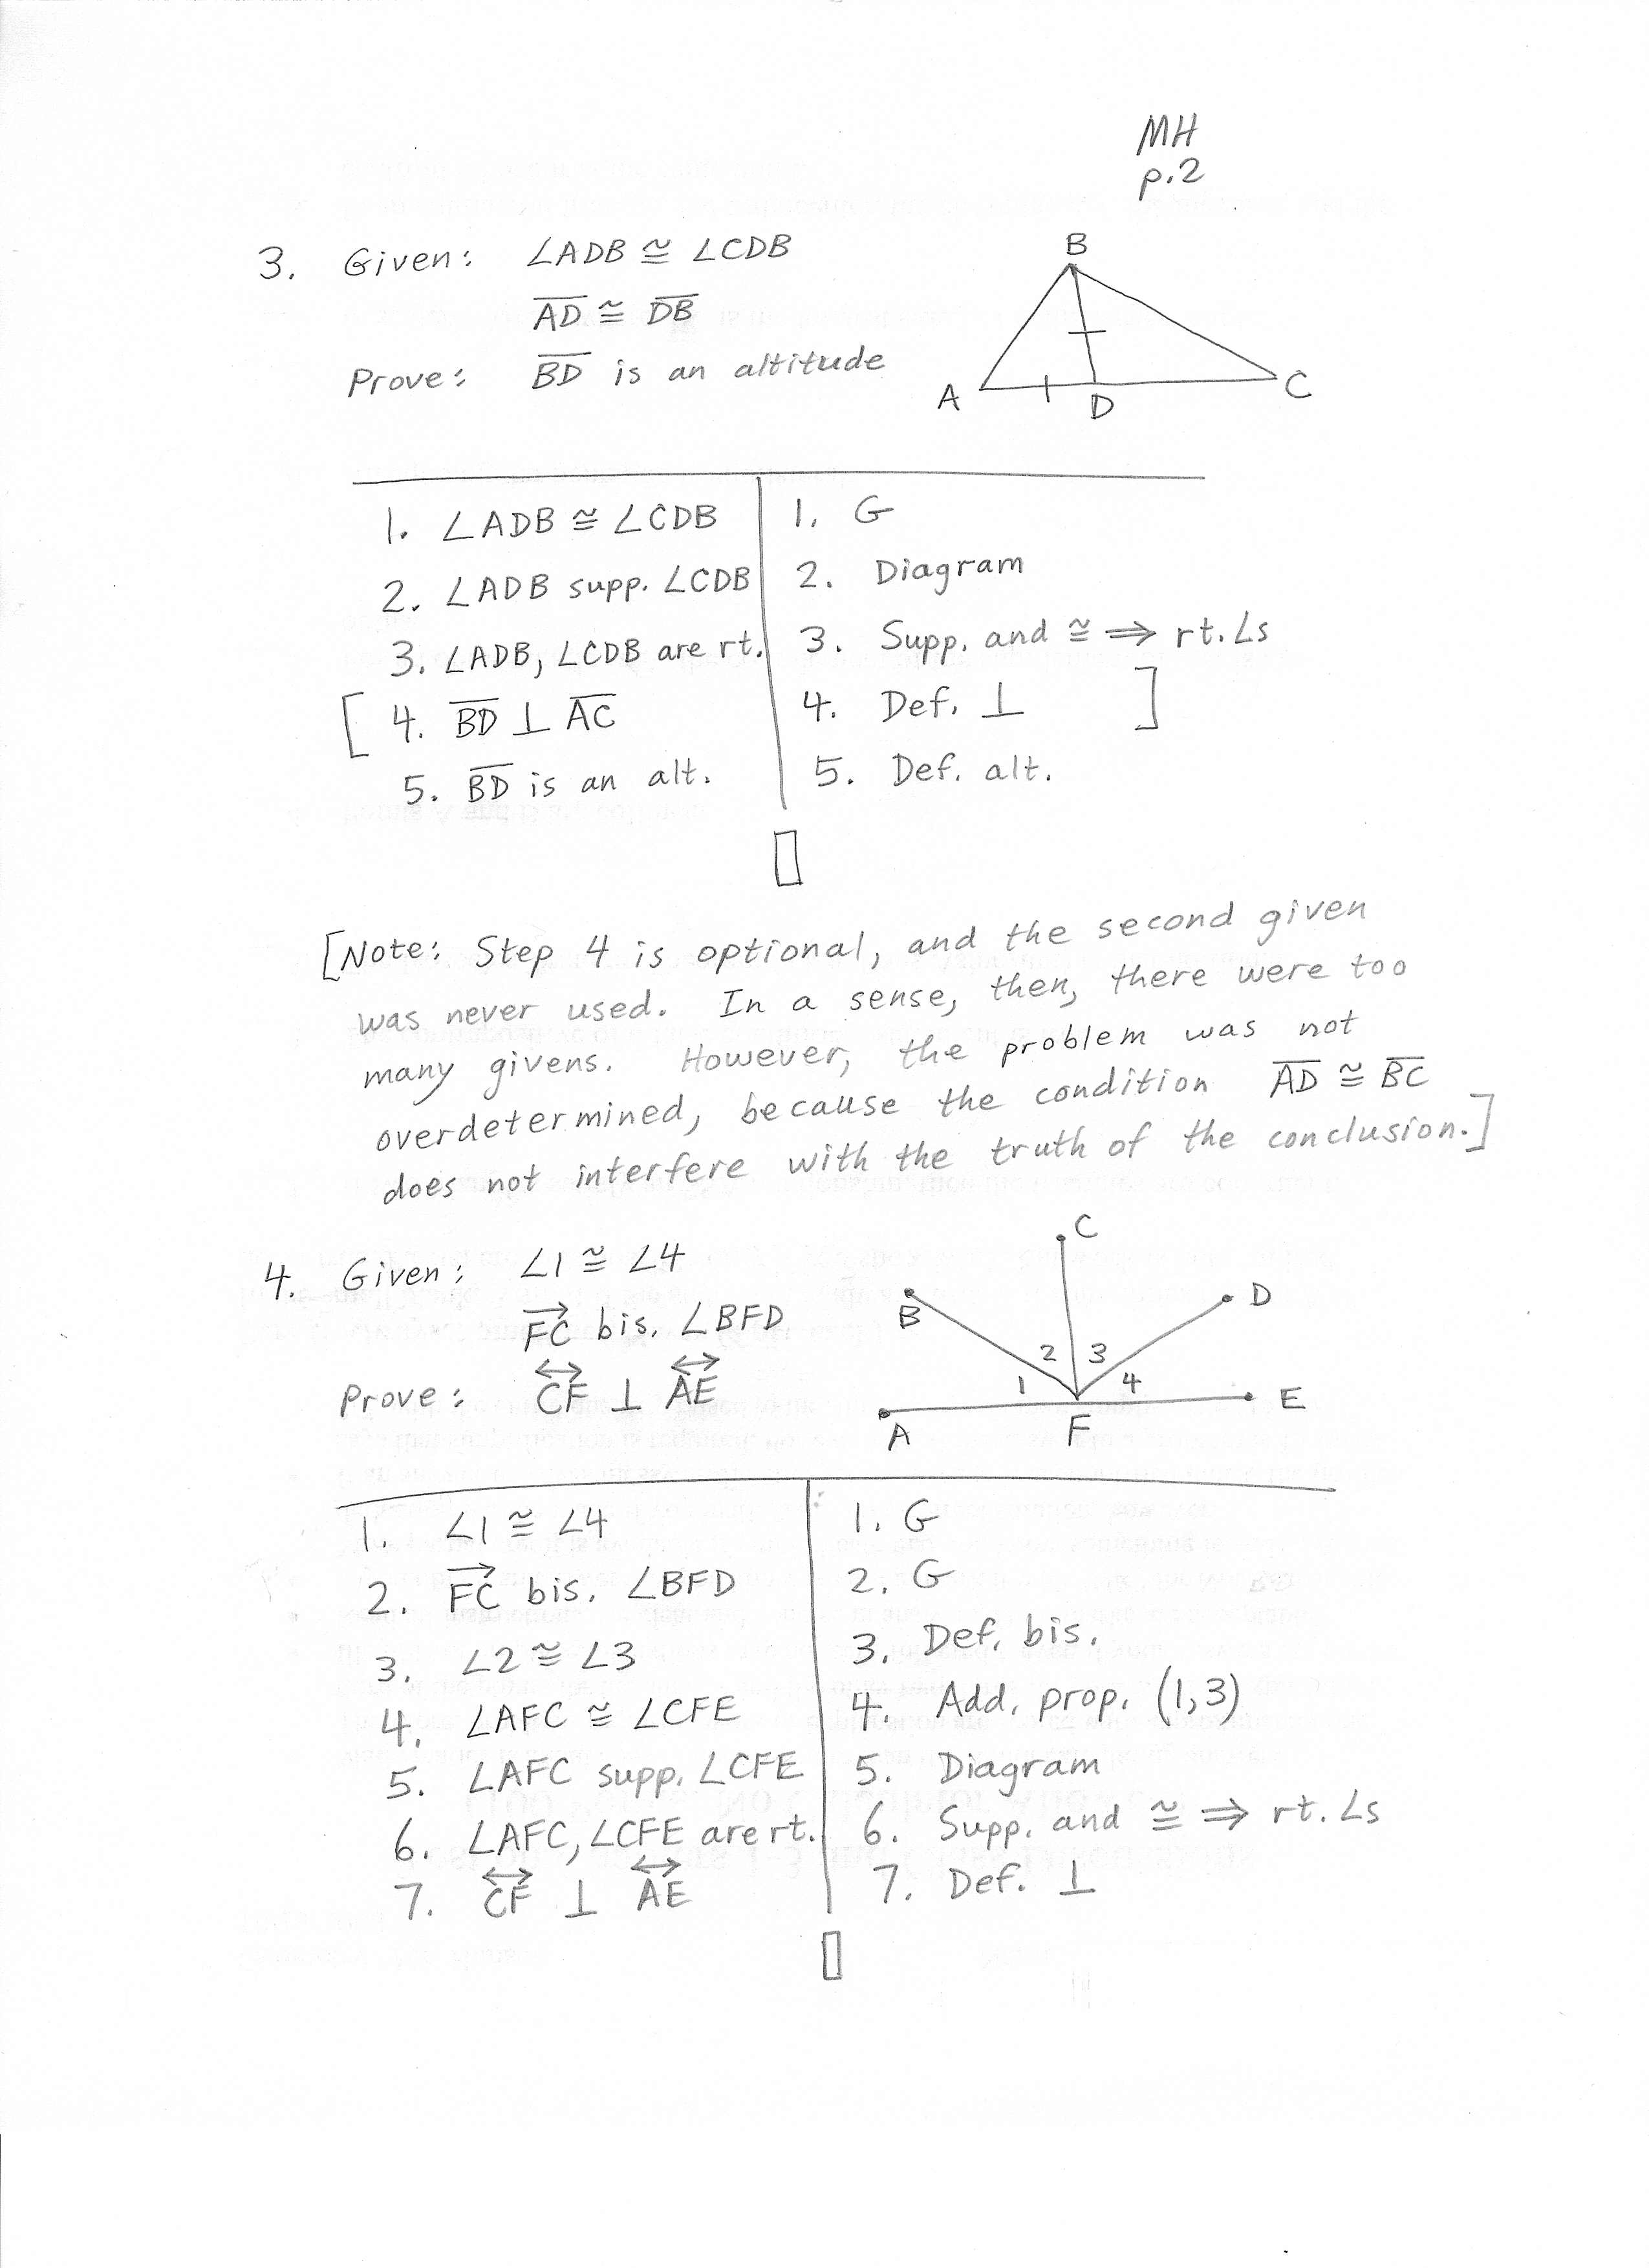 MH
p.2
3. Given: ∠ADB ≅ ∠CDB
A̅D̅ ≅ D̅B̅
Prove: B̅D̅ is an altitude
B
A
D
C
1. ∠ADB ≅ ∠CDB 1. G
2. ∠ADB supp. ∠CDB 2. Diagram
3. ∠ADB, ∠CDB are rt. 3. Supp. and ≅ ⇒ rt. ∠s
[ 4. B̅D̅ ⊥ A̅C̅ 4. Def. ⊥ ]
5. B̅D̅ is an alt. 5. Def. alt.
[Note: Step 4 is optional, and the second given
was never used. In a sense, then, there were too
many givens. However, the problem was not
overdetermined, because the condition A̅D̅ ≅ B̅C̅
does not interfere with the truth of the conclusion.]
4. Given: ∠1 ≅ ∠4
F⃗C⃗ bis. ∠BFD
Prove: C⃡F⃡ ⊥ A⃡E⃡
C
B
D
2 3
1 4
E
A
F
1. ∠1 ≅ ∠4 1. G
2. F⃗C⃗ bis. ∠BFD 2. G
3. ∠2 ≅ ∠3 3. Def. bis.
4. ∠AFC ≅ ∠CFE 4. Add. prop. (1,3)
5. ∠AFC supp. ∠CFE 5. Diagram
6. ∠AFC, ∠CFE are rt. 6. Supp. and ≅ ⇒ rt. ∠s
7. C⃡F⃡ ⊥ A⃡E⃡ 7. Def. ⊥